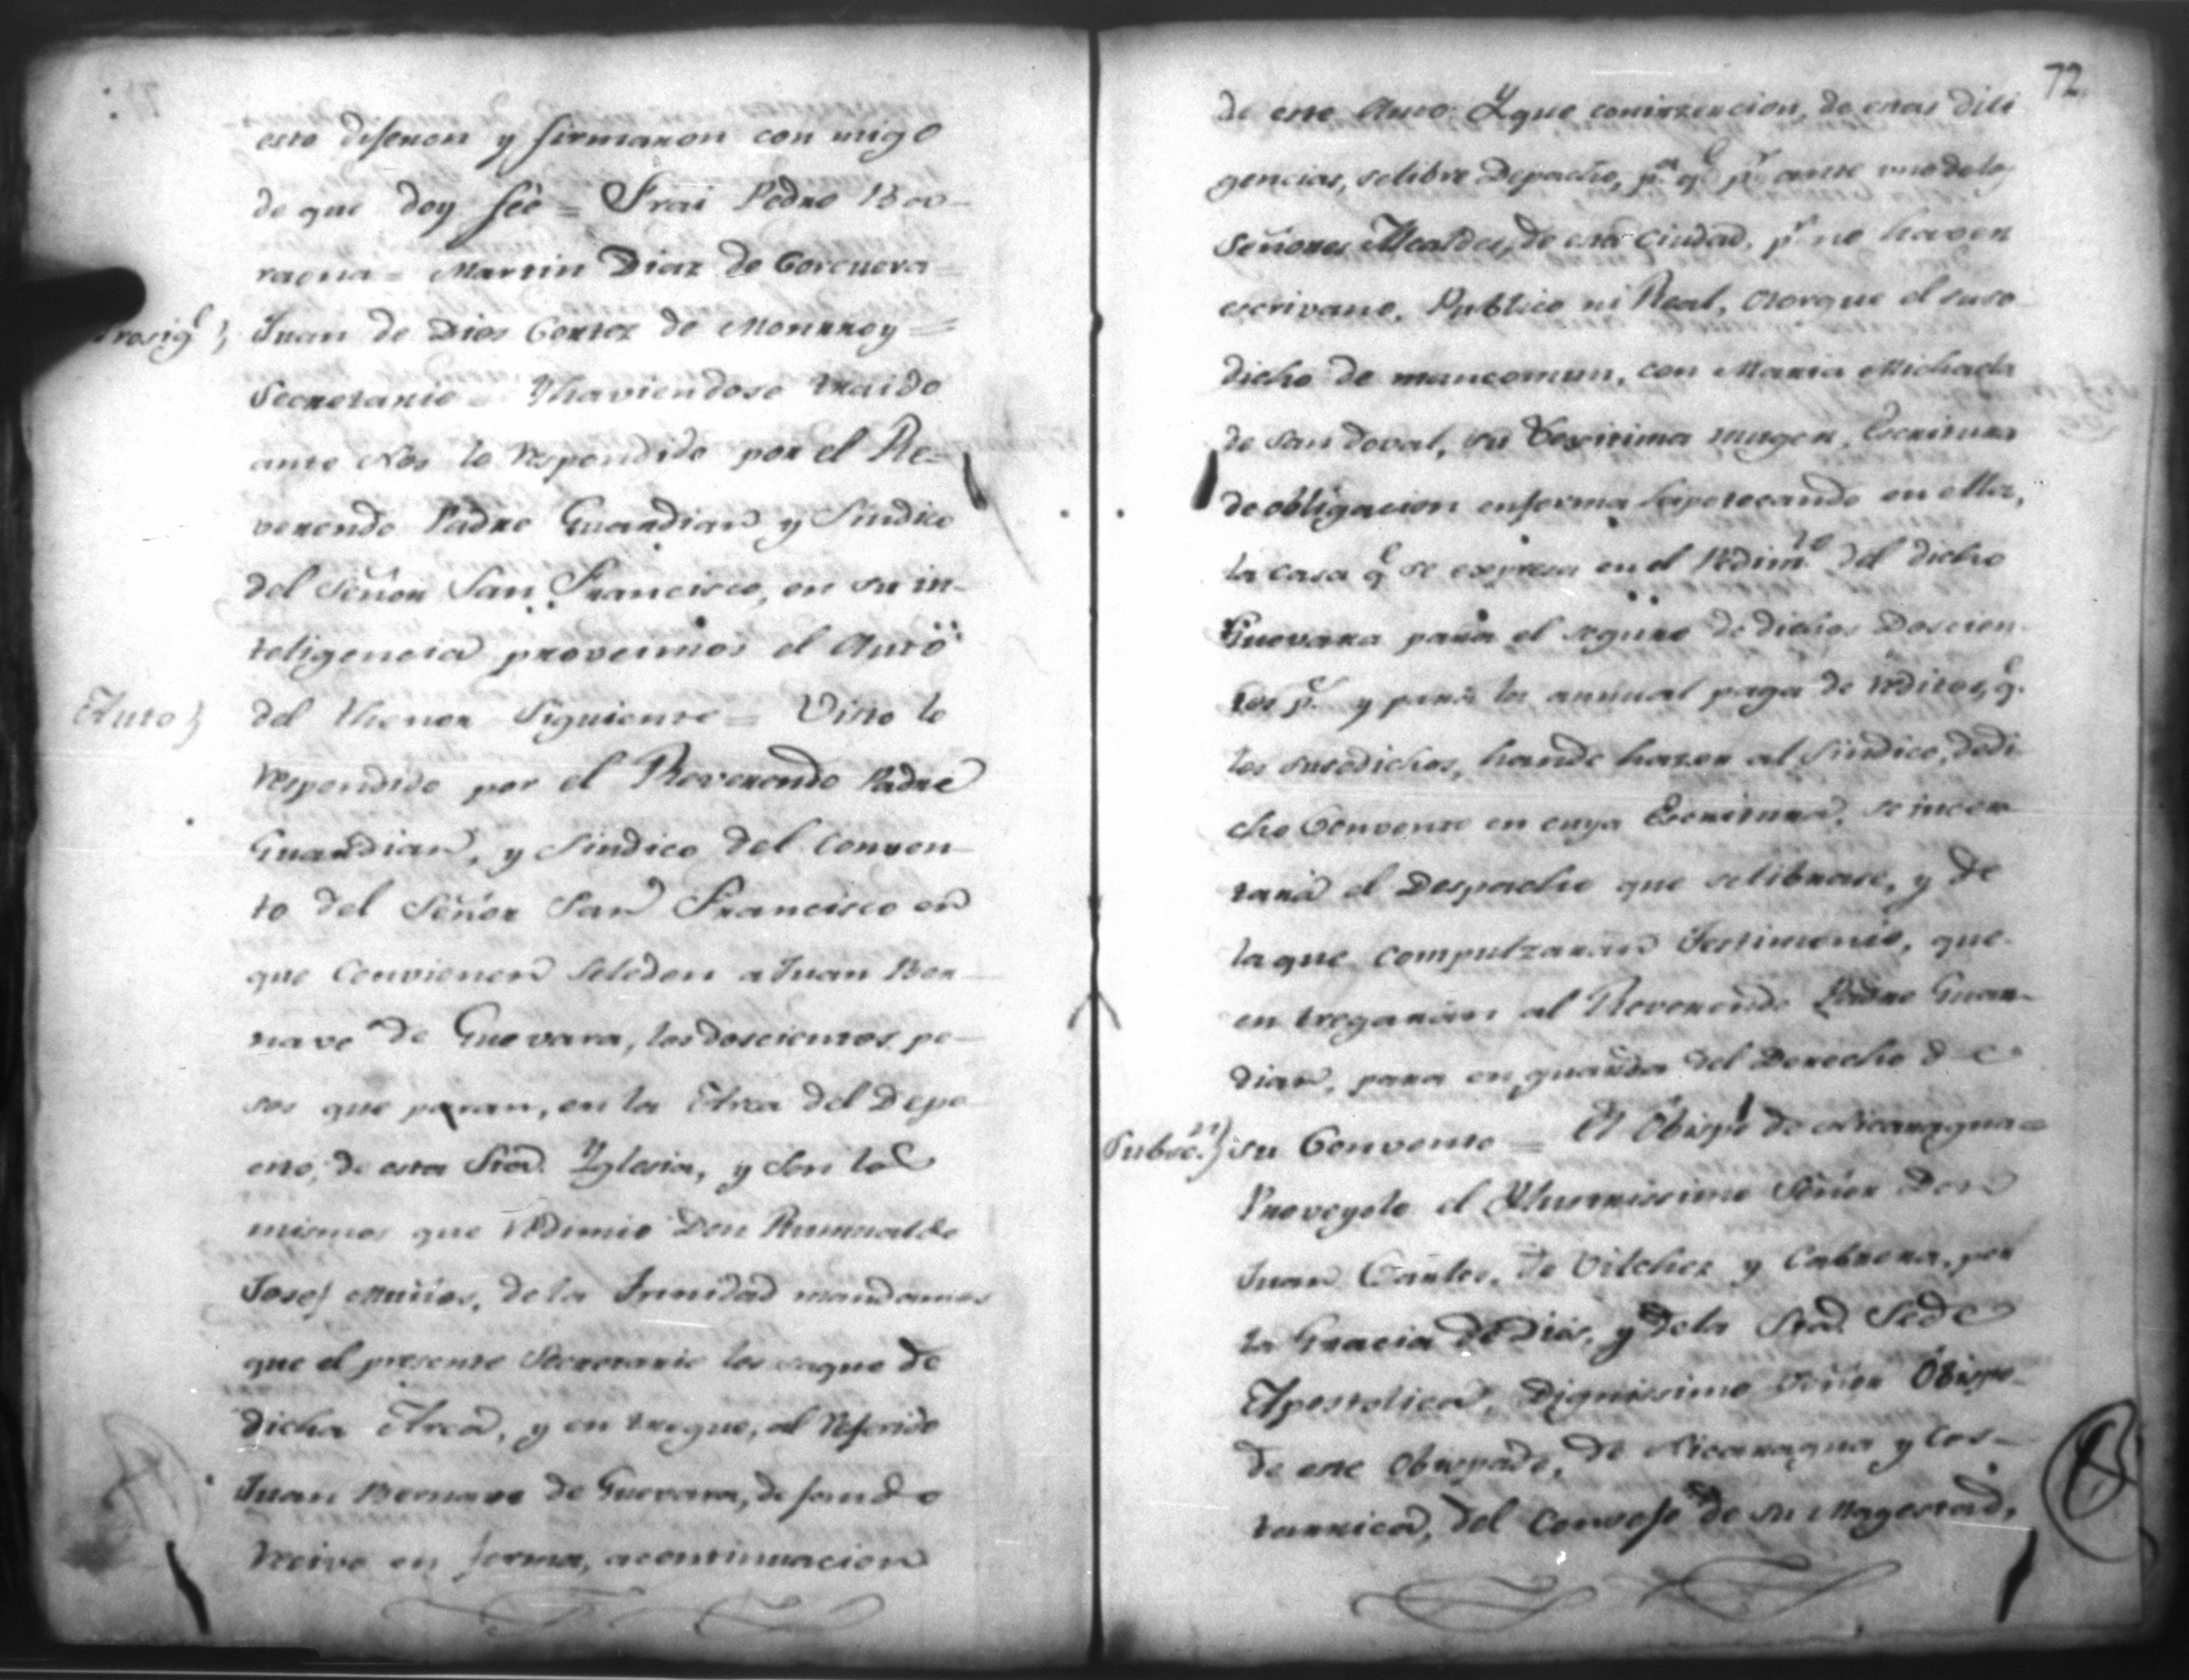 esto dijeron y firmaron con migo
de que doy feè = Frai Pedro Boo-
raona = Martin Diaz de Corcuera =
Prosigᵉ} Juan de Dios Cortez de Monrroy =
Secretario = Yhaviendose traido
ante Nos lo respondido por el Re-
verendo Padre Guardian y Sindico
del Señor San Francisco, en su in-
teligencia proveimos el Auto
Auto} del thenor Siguiente = Visto lo
respondido por el Reverendo Padre
Guardian, y Sindico del Conven-
to del Señor San Francisco en
que Convienen seleden a Juan Ber-
nave de Guevara, los doscientos pe-
sos que paran, en la Arca del Depo-
sito, de esta Sta. Yglesia, y son los
mismos que redimio Don Rumualdo
Josef Muños, de la Trinidad mandamos
que el presente Secretario los saque de
dicha Arca, y en tregue, al referido
Juan Bernave de Guevara, dejando
recivo en forma, acontinuacion
72.
de este Auto. Yque coninzercion, de estas dili
gencias, selibre Depacho, pᵃ qᵉ pʳ ante uno de los
Señores Alcaldes, de esta Ciudad, pʳ no haver
escrivano, Publico ni Real, otorgue el suso
dicho de mancomun, con Maria Michaela
de Sandoval, su Lexitima muger, Escritura
de obligacion enforma Iapotecando en ella,
la casa qᵉ se expresa en el Pedimᵗᵒ del dicho
Guevara para el seguro de dichos Doscien-
tos pˢ y para la annual paga de reditos, qᵉ
los susodichos, hande hazer al Sindico, dedi
cho Convento en cuya Escritura, se incer-
tará el Despacho que selibrare, y de
laque compulzarán Testimonio, que
en tregarán al Reverendo Padre Guar-
dian, para en guarda del Derecho de
Subscⁿ} su Convento = El Obispo de Nicaragua =
Proveyolo el Yllustrissimo Señor Don
Juan Carlos, de Vilchez y Cabrera, por
la Gracia de Dios, y dela Sta. Sede
Apostolica, Dignissimo Señor Obispo
de este Obispado, de Nicaragua y Cos-
tarrica, del Consejo de su Magestad,